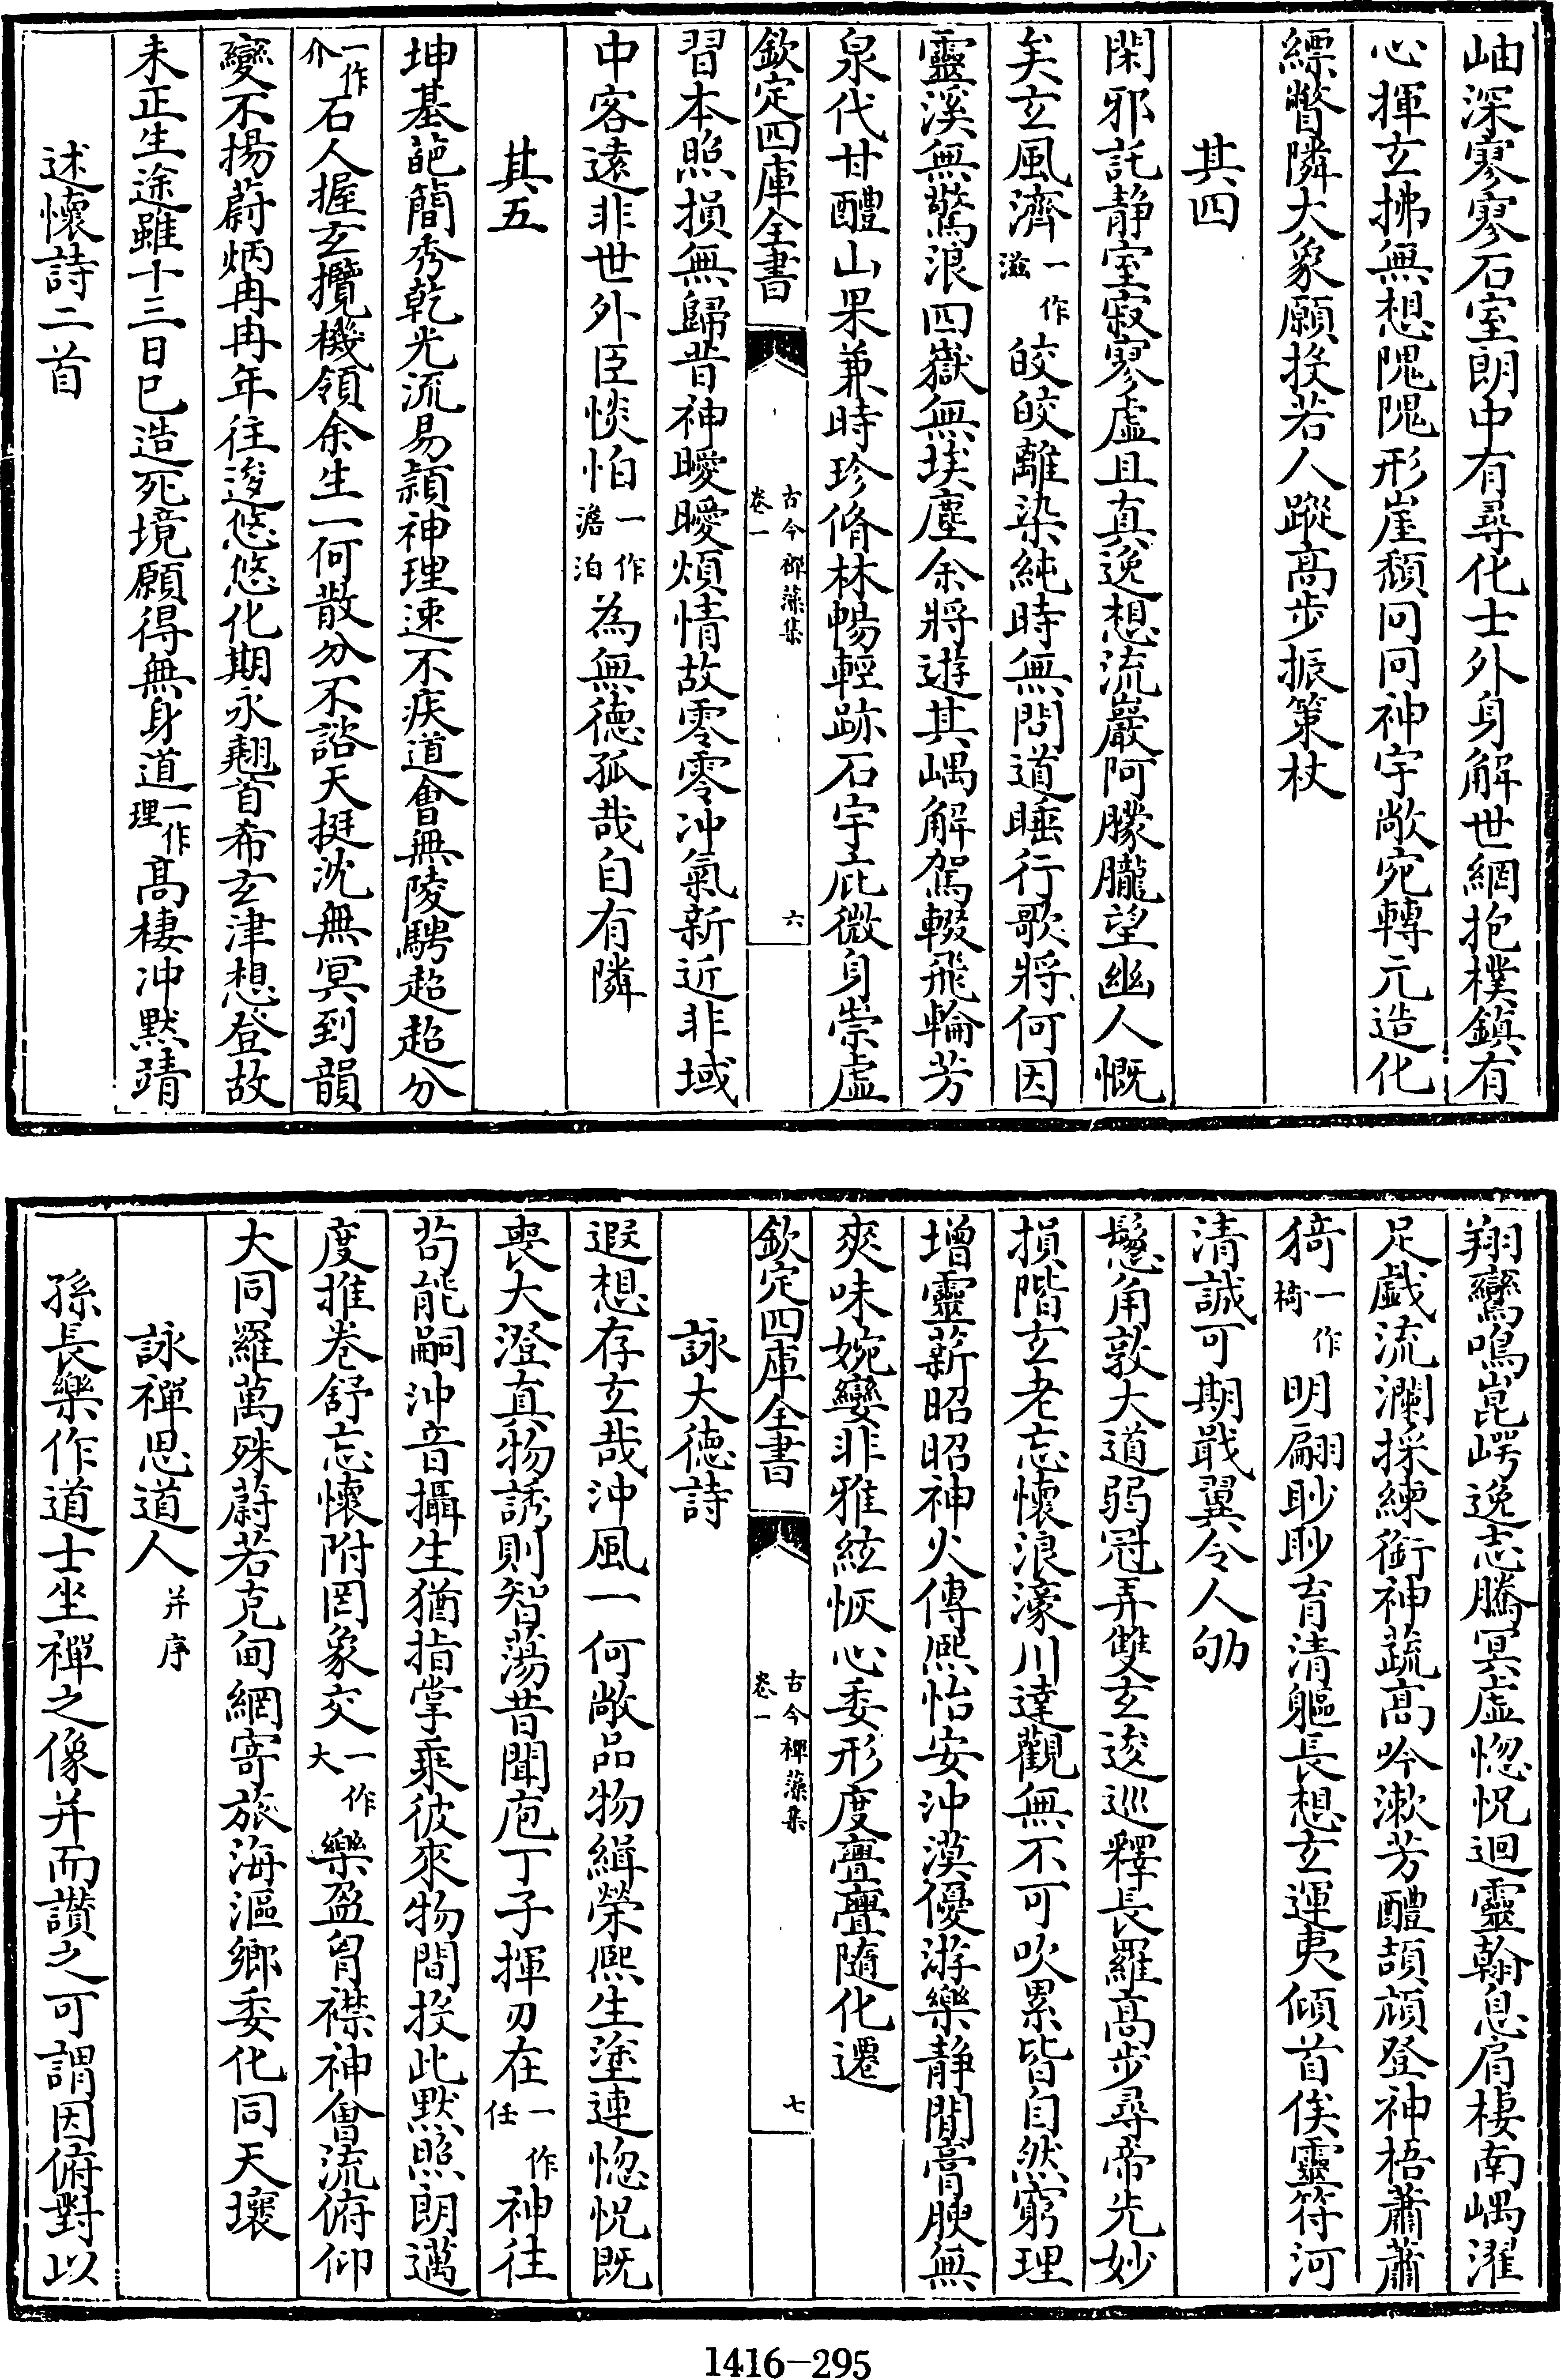 岫深寥寥石室朗中有尋化士外身解世網抱樸鎮有
心揮玄拂無想隗隗形崖頹冋冋神宇敞宛轉元造化
縹瞥隣大象願投若人蹤高步振策杖
其四
閑邪託静室寂寥虛且真逸想流巖阿朦朧望幽人慨
矣玄風濟一作滋皎皎離染純時無問道睡行歌將何因
靈溪無驚浪四嶽無埃塵余將遊其嵎解駕輟飛輪芳
泉代甘醴山果兼時珍脩林暢輕跡石宇庇微身崇虛
欽定四庫全書 古今禪藻集 卷一 六
習本照損無歸昔神曖曖煩情故零零沖氣新近非域
中客遠非世外臣惔怕一作澹泊為無德孤哉自有隣
其五
坤基葩簡秀乾光流易頴神理速不疾道會無陵騁超超分
一作介石人握玄攬機領余生一何散分不諮天挺沈無冥到韻
變不揚蔚炳冉冉年往逡悠悠化期永翹首希玄津想登故
未正生途雖十三日已造死境願得無身道一作理高棲沖默靖
述懷詩二首
翔鸞鳴崑崿逸志騰冥虛惚怳迴靈翰息肩棲南嵎濯
足戲流瀾採練銜神蔬高吟漱芳醴頡頏登神梧蕭蕭
猗一作椅明翮眇眇育清軀長想玄運夷傾首俟靈符河
清誠可期戢翼令人劬
鬉角敦大道弱冠弄雙玄逡巡釋長羅高步尋帝先妙
損階玄老忘懷浪濠川達觀無不可吹累皆自然窮理
增靈薪昭昭神火傳熙怡安沖漠優游樂静閒膏腴無
爽味婉孌非雅絃恢心委形度亹亹隨化遷
欽定四庫全書 古今禪藻集 卷一 七
詠大德詩
遐想存玄哉沖風一何敞品物緝榮熙生塗連惚怳既
喪大澄真物誘則智蕩昔聞庖丁子揮刃在一作任神往
苟能嗣沖音攝生猶指掌乘彼來物間投此默照朗邁
度推卷舒忘懷附罔象交一作大樂盈胷襟神會流俯仰
大同羅萬殊蔚若充甸網寄旅海漚鄉委化同天壤
詠禪思道人并序
孫長樂作道士坐禪之像并而讚之可謂因俯對以
1416-295